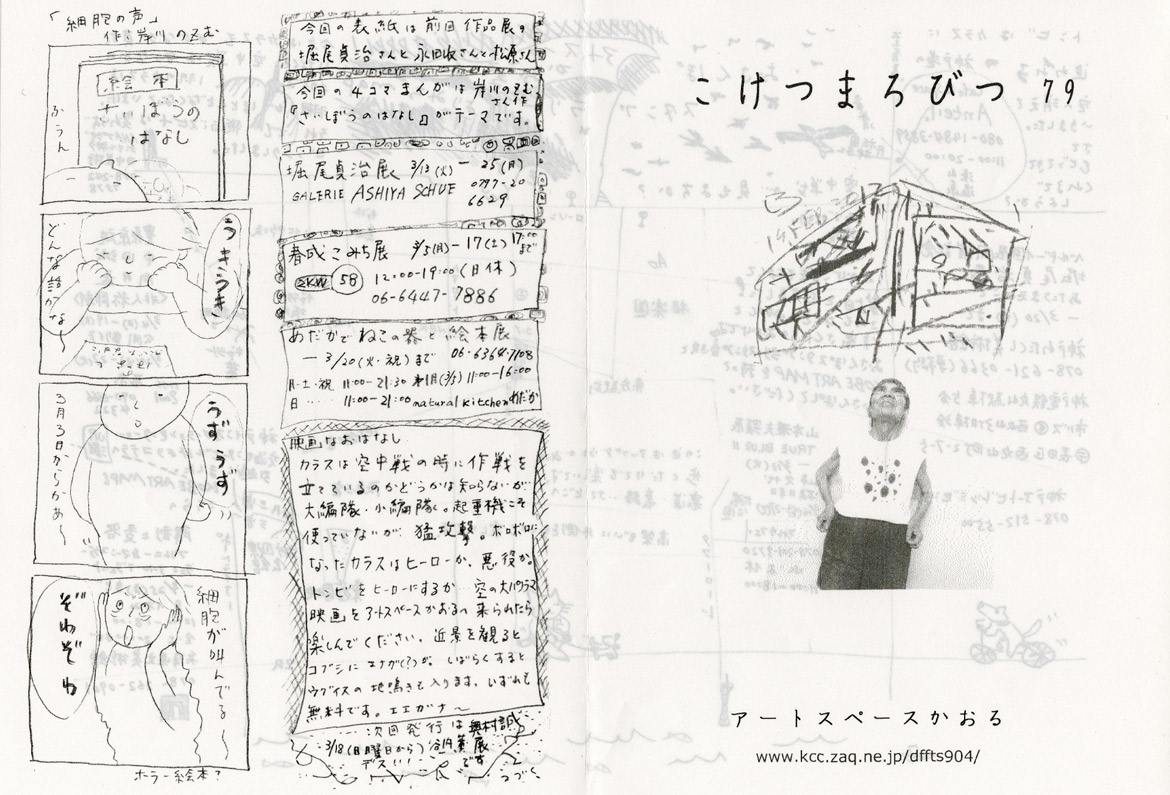 「細胞の声」
作:岸川のぞむ
絵本
さいぼうの
はなし
ふうん
うきうき
どんな話かなぁ〜
うずうず
3月3日からかぁ〜
細胞が叫んでる〜
ぞわぞわ
ホラー絵本?
今回の表紙は前回作品展の
堀尾貞治さんと永田收さんと松原さん
今回の4コマまんがは岸川のぞむ
さん作
『さいぼうのはなし』がテーマです。
堀尾貞治展 3/13(火) — 25(月)
GALERIE ASHIYA SCHULE 0797-20
6629
春成こみち展 3/5(月) — 17(土) 17:00まで
SKW 58 12:00-19:00 (日休)
06-6447-7886
めだかでねこの器と絵本展
— 3/20(火・祝)まで 06-6364-7108
月-土・祝 11:00-21:30 第1月(3/5) 11:00-16:00
日 ‥‥ 11:00-21:00 natural kitchen めだか
映画なおはなし
カラスは空中戦の時に作戦を
立てているのかどうかは知らないが
大編隊・小編隊。起重機こそ
使っていないが、猛攻撃。ボロボロに
なったカラスはヒーローか、悪役か。
トンビをヒーローにするか 空の大パノラマ
映画をアートスペースかおるへ来られたら
楽しんでください。近景を観ると
コブシにエナガ(?)が。しばらくすると
ウグイスの地鳴きて入ります。いずれも
無料です。エエガナ〜
次回発行は奥村誠
3/18(日曜日から) 展
デスい! です
つづく
こけつまろびつ 79
アートスペースかおる
www.kcc.zaq.ne.jp/dffts904/